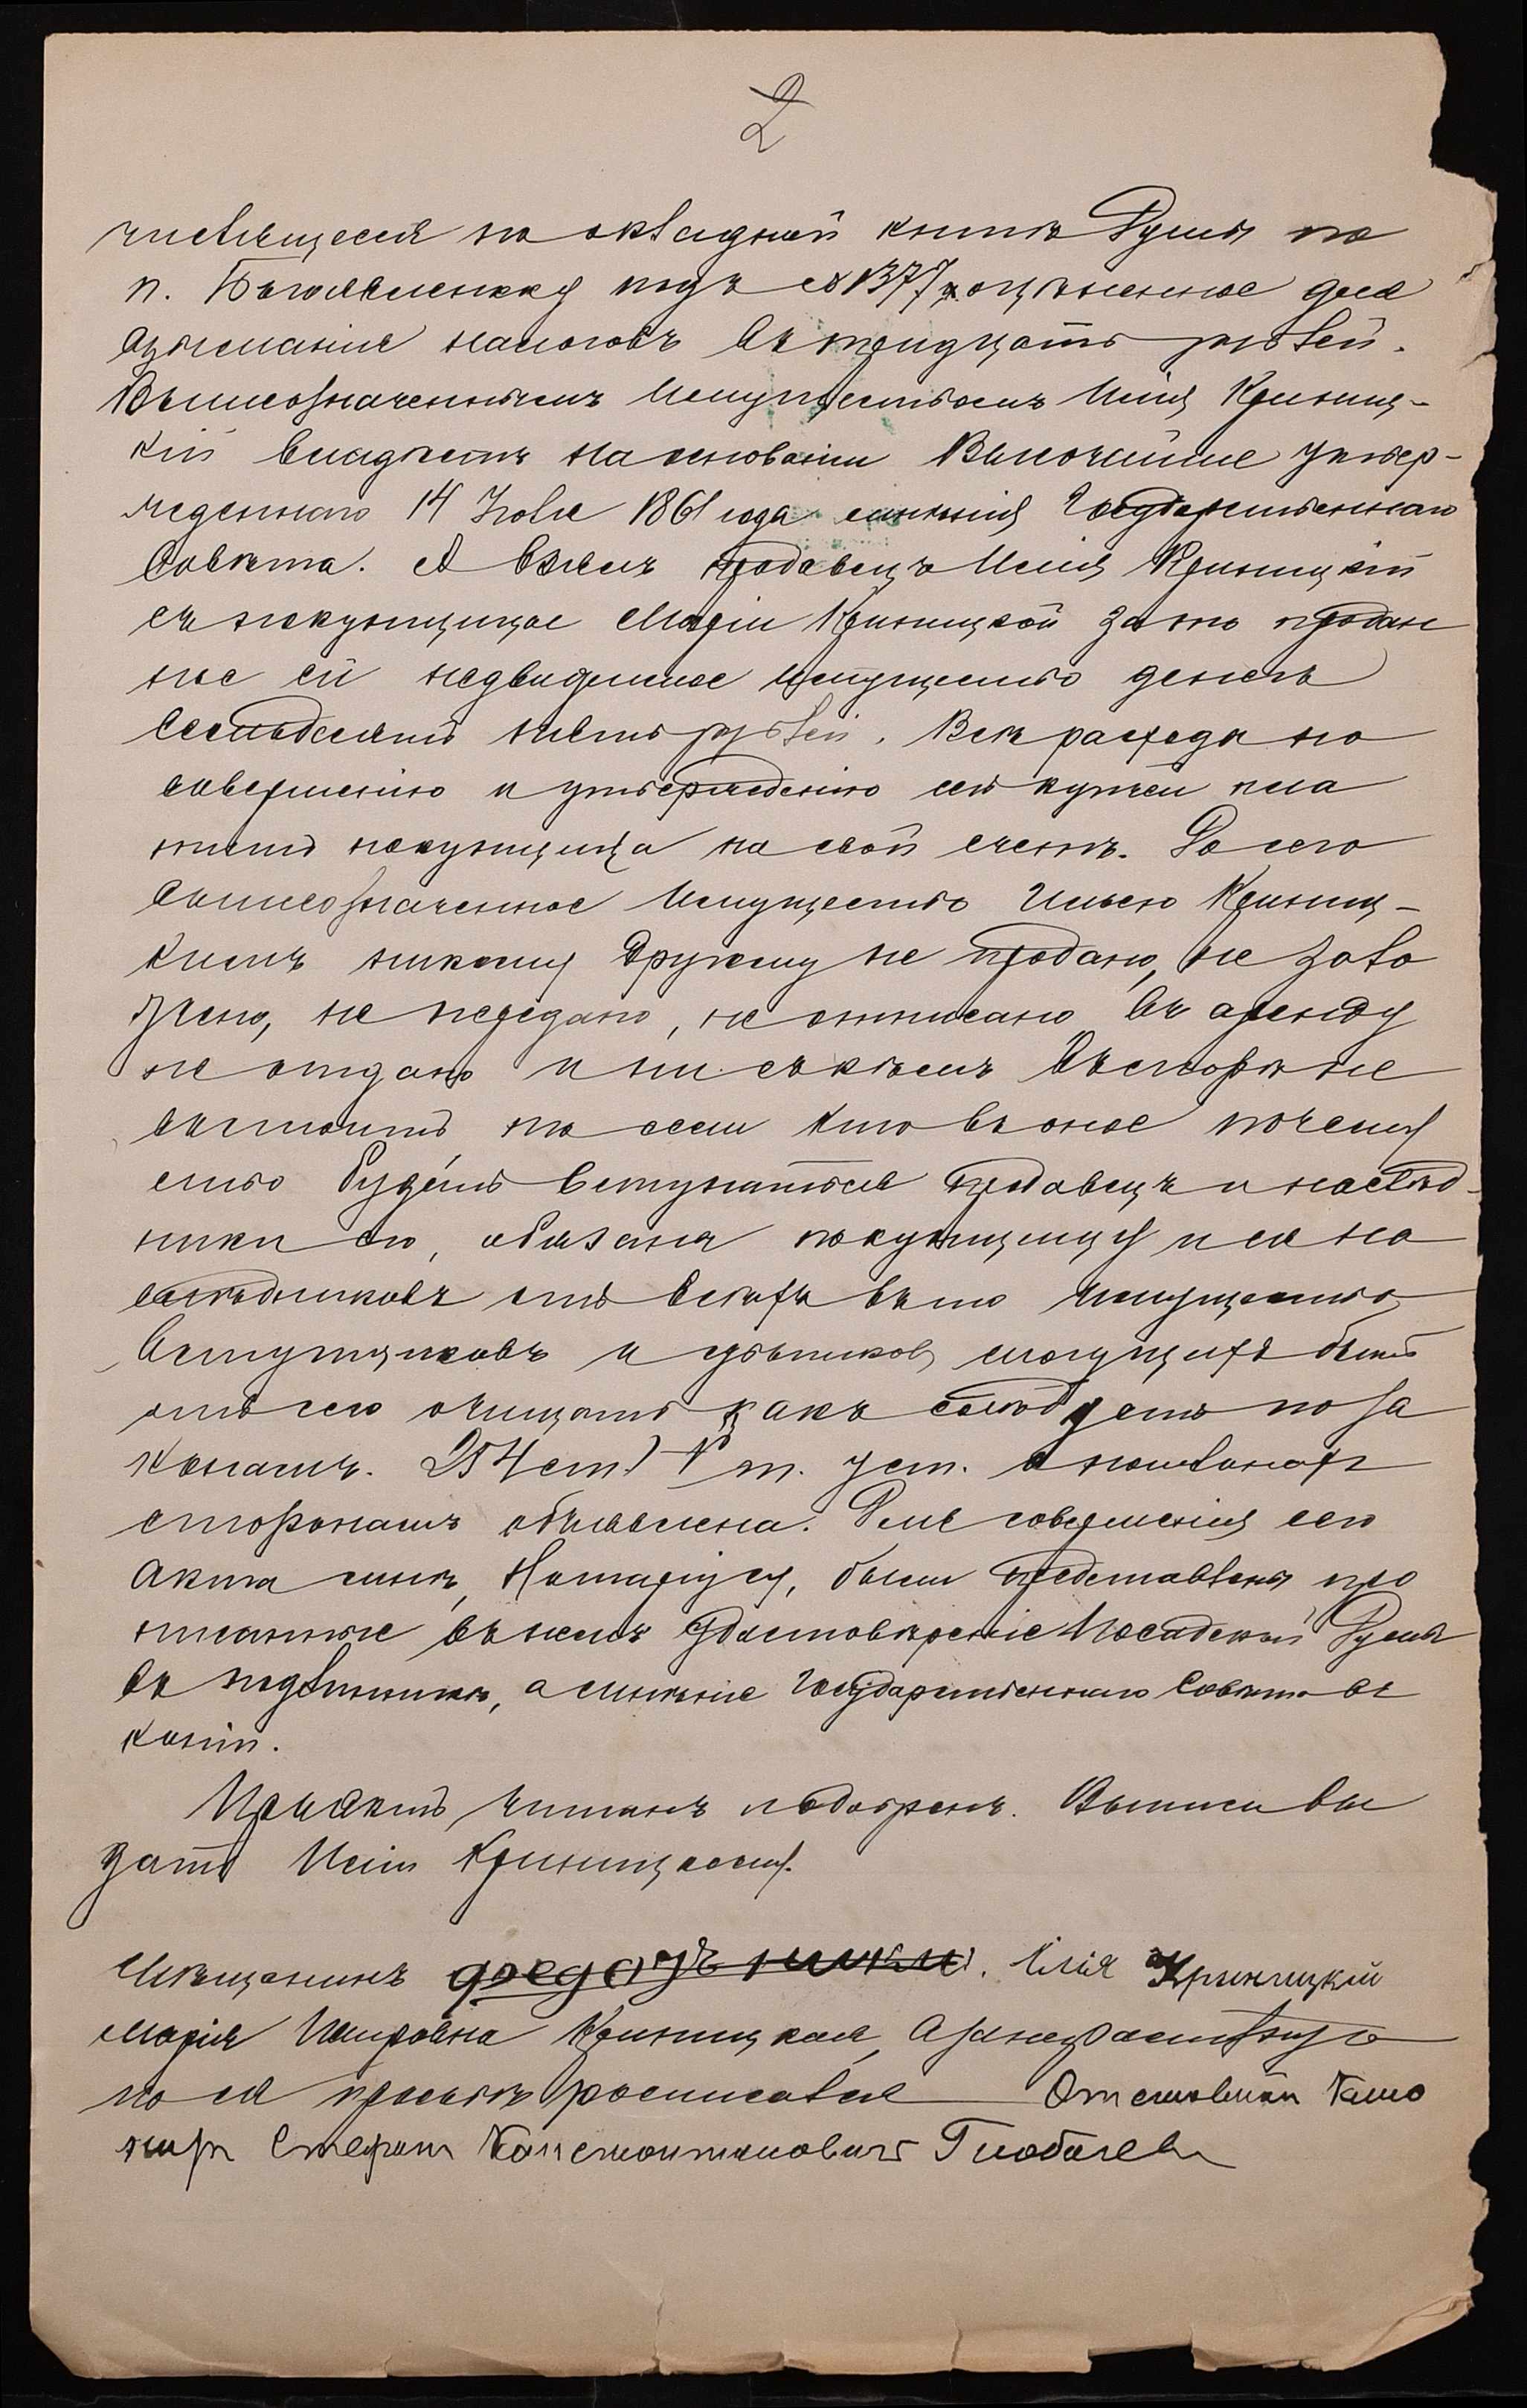 2
числящееся по окладной книге Думы по
п. Богоявленску подъ № 1377 и оцѣненное для
взыманія налоговъ въ тридцать рублей.
Вышеозначеннымъ имуществомъ Илія Криниц-
кій владѣетъ на основаніи Высочайше утвер-
жденнаго 14 Іюля 1861 года мнѣнія Государственнаго
Совѣта. А взялъ продавецъ Илія Криницкій
съ покупщицы Маріи Криницкой за то продан
ное ей недвижимое имущество денегъ
семьдесятъ пять рублей. Всѣ расходы по
совершенію и утвержденію сей купчей пла
титъ покупщица на свой счетъ. До сего
вышеозначенное имущество Ильею Криниц-
кимъ никому другому не продано, не зало
жено, не передано, не отписано, въ аренду
не отдано и ни съ кѣмъ въ спорѣ не
состоитъ то если кто въ оное почему
либо будетъ вступаться продавецъ и наслѣд-
ники его, обязаны покупщицу и ея на
слѣдниковъ отъ всѣхъ въ то имущество
вступщиковъ и убытковъ могущихъ быть
отъ сего очищать какъ слѣдуетъ по за
конамъ. 254 ст. V т. уст. о пошлинахъ
сторонамъ объявлена. Для совершенія сего
акта мнѣ, Нотаріусу, были представлены про
писанные въ немъ удостовѣреніе Посадской Думы
въ подлинникѣ, а мнѣніе Государственнаго Совѣта въ
копіи.
Проэктъ читанъ и одобренъ. Выписи вы
дать Иліи Криницкому.
Мѣщанинъ Илія Криницкій
Марія Криницкая, а за неграмотную
по ея просьбѣ росписался Отставной Кано
ниръ Стефанъ Константиновичъ